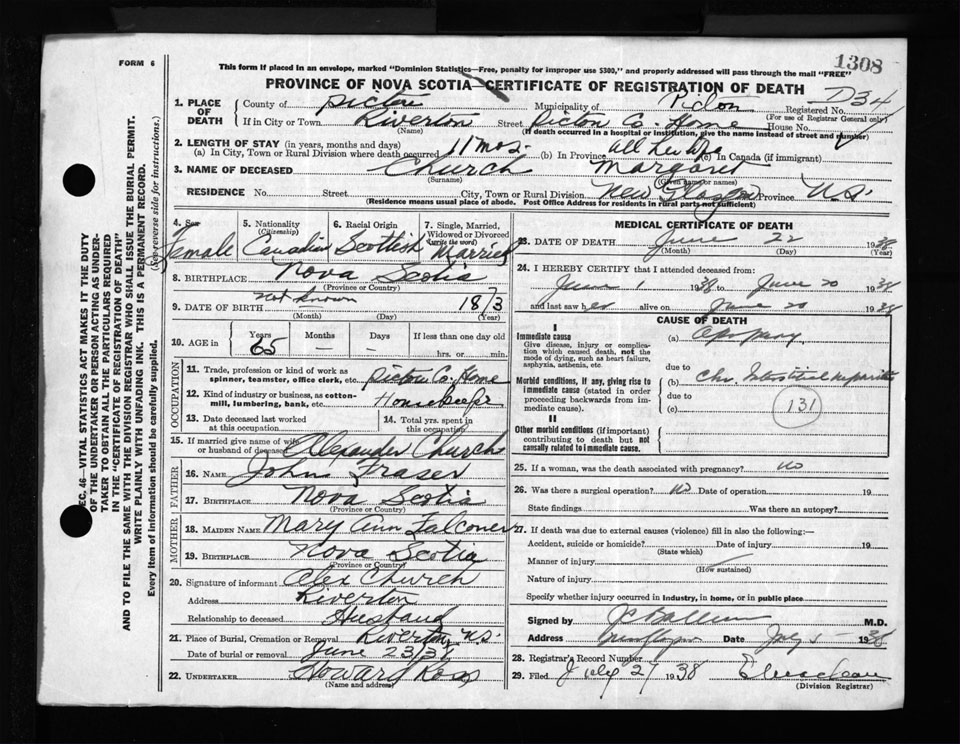 1308
FORM 6
This form if placed in an envelope, marked "Dominion Statistics—Free, penalty for improper use $300," and properly addressed will pass through the mail "FREE"
PROVINCE OF NOVA SCOTIA—CERTIFICATE OF REGISTRATION OF DEATH
1. PLACE OF DEATH County of Pictou Municipality of Pictou Registered No. D34
(For use of Registrar General only)
If in City or Town Riverton Street Pictou Co. Home House No.
(Name) (If death occurred in a hospital or institution, give the name instead of street and number)
2. LENGTH OF STAY (in years, months and days)
(a) In City, Town or Rural Division where death occurred 11 mos. (b) In Province all her life (c) In Canada (if immigrant)
3. NAME OF DECEASED Church Margaret
(Surname) (Given name or names)
RESIDENCE No. Street City, Town or Rural Division New Glasgow Province N.S.
(Residence means usual place of abode. Post Office Address for residents in rural parts not sufficient)
4. Sex Female
5. Nationality (Citizenship) Canadian
6. Racial Origin Scottish
7. Single, Married, Widowed or Divorced (write the word) Married
8. BIRTHPLACE Nova Scotia
(Province or Country)
9. DATE OF BIRTH not known 1873
(Month) (Day) (Year)
10. AGE in Years Months Days If less than one day old
65 — — hrs. or min.
OCCUPATION
11. Trade, profession or kind of work as spinner, teamster, office clerk, etc. Pictou Co. Home
12. Kind of industry or business, as cotton-mill, lumbering, bank, etc. Housekeeper
13. Date deceased last worked at this occupation
14. Total yrs. spent in this occupation
15. If married give name of wife or husband of deceased Alexander Church
FATHER
16. NAME John Fraser
17. BIRTHPLACE Nova Scotia
(Province or Country)
MOTHER
18. MAIDEN NAME Mary Ann Falconer
19. BIRTHPLACE Nova Scotia
(Province or Country)
20. Signature of informant Alex Church
Address Riverton
Relationship to deceased Husband
21. Place of Burial, Cremation or Removal Riverton N.S.
Date of burial or removal June 23/38
22. UNDERTAKER Howard Ross
(Name and address)
MEDICAL CERTIFICATE OF DEATH
23. DATE OF DEATH June 22 1938
(Month) (Day) (Year)
24. I HEREBY CERTIFY that I attended deceased from
June 1 1938 to June 20 1938
and last saw her alive on June 20 1938
CAUSE OF DEATH
I
Immediate cause
Give disease, injury or complication which caused death, not the mode of dying, such as heart failure, asphyxia, asthenia, etc.
(a)
due to
Morbid conditions, if any, giving rise to immediate cause (stated in order proceeding backwards from immediate cause).
(b) Chr. Interstitial Nephritis
due to
(c) 131
II
Other morbid conditions (if important) contributing to death but not causally related to immediate cause.
25. If a woman, was the death associated with pregnancy? no
26. Was there a surgical operation? no Date of operation 19
State findings Was there an autopsy?
27. If death was due to external causes (violence) fill in also the following:—
Accident, suicide or homicide? Date of injury 19
(State which)
Manner of injury
(How sustained)
Nature of injury
Specify whether injury occurred in industry, in home, or in public place
Signed by M.D.
Address New Glasgow Date July 1938
28. Registrar's Record Number
29. Filed July 2 1938
(Division Registrar)
SEC. 46—VITAL STATISTICS ACT MAKES IT THE DUTY
OF THE UNDERTAKER OR PERSON ACTING AS UNDERTAKER TO OBTAIN ALL THE PARTICULARS REQUIRED
IN THE "CERTIFICATE OF REGISTRATION OF DEATH"
AND TO FILE THE SAME WITH THE DIVISION REGISTRAR WHO SHALL ISSUE THE BURIAL PERMIT.
WRITE PLAINLY WITH UNFADING INK. THIS IS A PERMANENT RECORD.
Every item of information should be carefully supplied. (See reverse side for instructions.)